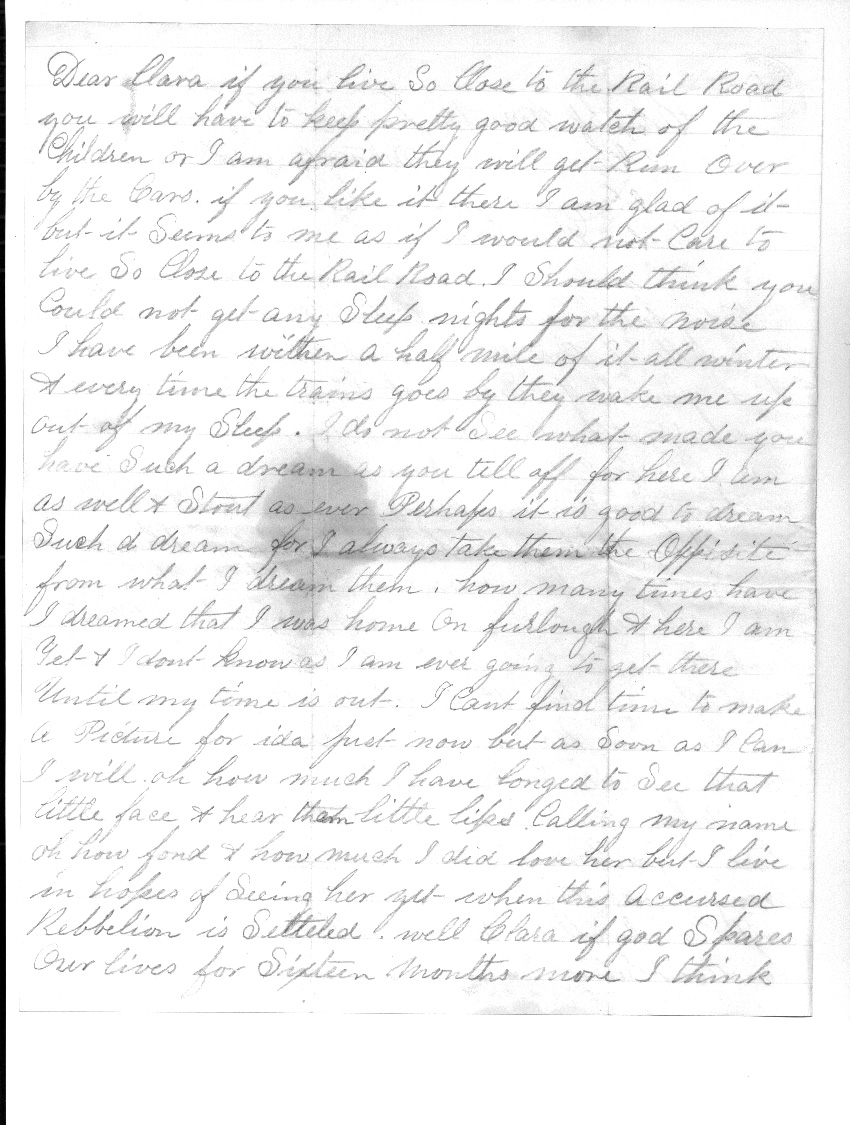 Dear Clara if you live So Close to the Rail Road
you will have to keep pretty good watch of the
Children or I am afraid they will get Run Over
by the Cars. if you like it there I am glad of it
but it Seems to me as if I would not Care to
live So Close to the Rail Road. I Should think you
Could not get any Sleep nights for the noise
I have been within a half mile of it all winter
& every time the trains goes by they wake me up
out of my Sleep. I do not See what made you
have Such a dream as you tell off for here I am
as well & Stout as ever Perhaps it is good to dream
Such a dream for I always take them the Oppisite
from what I dream them. how many times have
I dreamed that I was home On furlough & here I am
Yet & I dont know as I am ever going to get there
Until my time is out. I Cant find time to make
a Picture for ida just now but as Soon as I Can
I will oh how much I have longed to See that
little face & hear them little lips Calling my name
oh how fond & how much I did love her but I live
in hopes of Seeing her yet when this accursed
Rebbelion is Setteled. well Clara if god Spares
Our lives for Sixteen months more I think